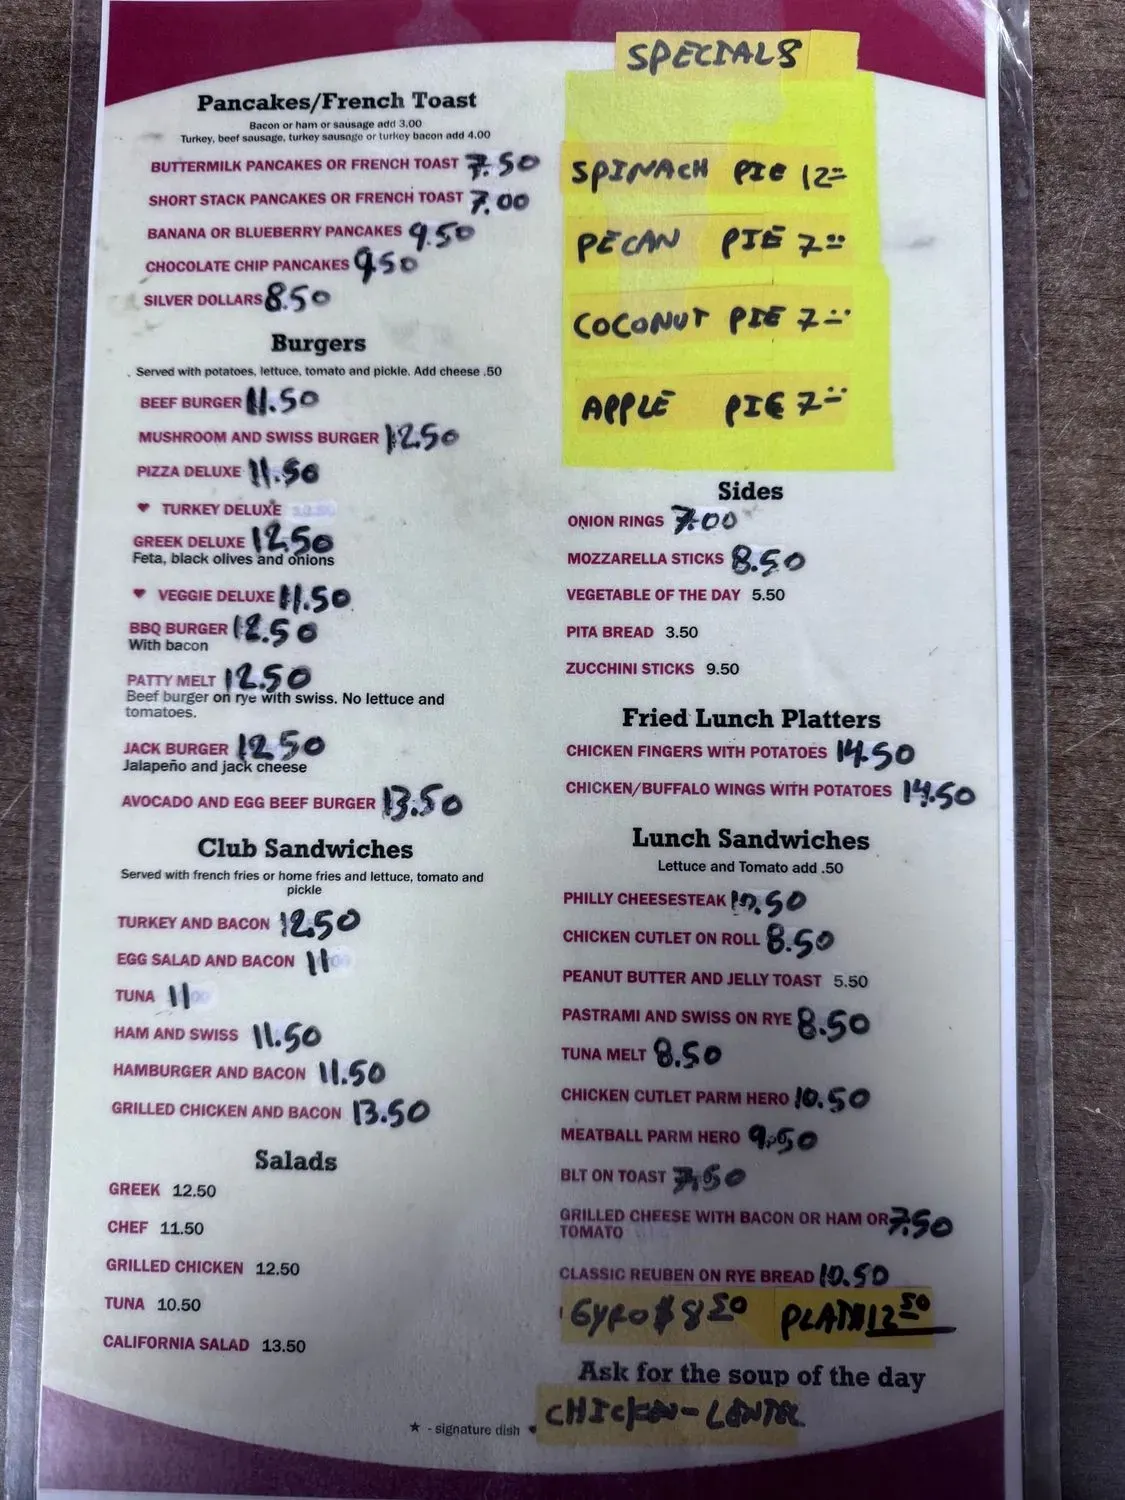 Pancakes/French Toast
Bacon or ham or sausage add 3.00
Turkey, beef sausage, turkey sausage or turkey bacon add 4.00
BUTTERMILK PANCAKES OR FRENCH TOAST 7.50
SHORT STACK PANCAKES OR FRENCH TOAST 7.00
BANANA OR BLUEBERRY PANCAKES 9.50
CHOCOLATE CHIP PANCAKES 9.50
SILVER DOLLARS 8.50
Burgers
Served with potatoes, lettuce, tomato and pickle. Add cheese .50
BEEF BURGER 11.50
MUSHROOM AND SWISS BURGER 12.50
PIZZA DELUXE 11.50
♥ TURKEY DELUXE
GREEK DELUXE 12.50
Feta, black olives and onions
♥ VEGGIE DELUXE 11.50
BBQ BURGER 12.50
With bacon
PATTY MELT 12.50
Beef burger on rye with swiss. No lettuce and
tomatoes.
JACK BURGER 12.50
Jalapeño and jack cheese
AVOCADO AND EGG BEEF BURGER 13.50
Club Sandwiches
Served with french fries or home fries and lettuce, tomato and
pickle
TURKEY AND BACON 12.50
EGG SALAD AND BACON 11
TUNA 11
HAM AND SWISS 11.50
HAMBURGER AND BACON 11.50
GRILLED CHICKEN AND BACON 13.50
Salads
GREEK 12.50
CHEF 11.50
GRILLED CHICKEN 12.50
TUNA 10.50
CALIFORNIA SALAD 13.50
★ - signature dish ♥
SPECIALS
SPINACH PIE 12=
PECAN PIE 7=
COCONUT PIE 7=
APPLE PIE 7=
Sides
ONION RINGS 7.00
MOZZARELLA STICKS 8.50
VEGETABLE OF THE DAY 5.50
PITA BREAD 3.50
ZUCCHINI STICKS 9.50
Fried Lunch Platters
CHICKEN FINGERS WITH POTATOES 14.50
CHICKEN/BUFFALO WINGS WITH POTATOES 14.50
Lunch Sandwiches
Lettuce and Tomato add .50
PHILLY CHEESESTEAK 10.50
CHICKEN CUTLET ON ROLL 8.50
PEANUT BUTTER AND JELLY TOAST 5.50
PASTRAMI AND SWISS ON RYE 8.50
TUNA MELT 8.50
CHICKEN CUTLET PARM HERO 10.50
MEATBALL PARM HERO 9.50
BLT ON TOAST 7.50
GRILLED CHEESE WITH BACON OR HAM OR 7.50
TOMATO
CLASSIC REUBEN ON RYE BREAD 10.50
GYRO $ 8 50 12 50
Ask for the soup of the day
CHICKEN -